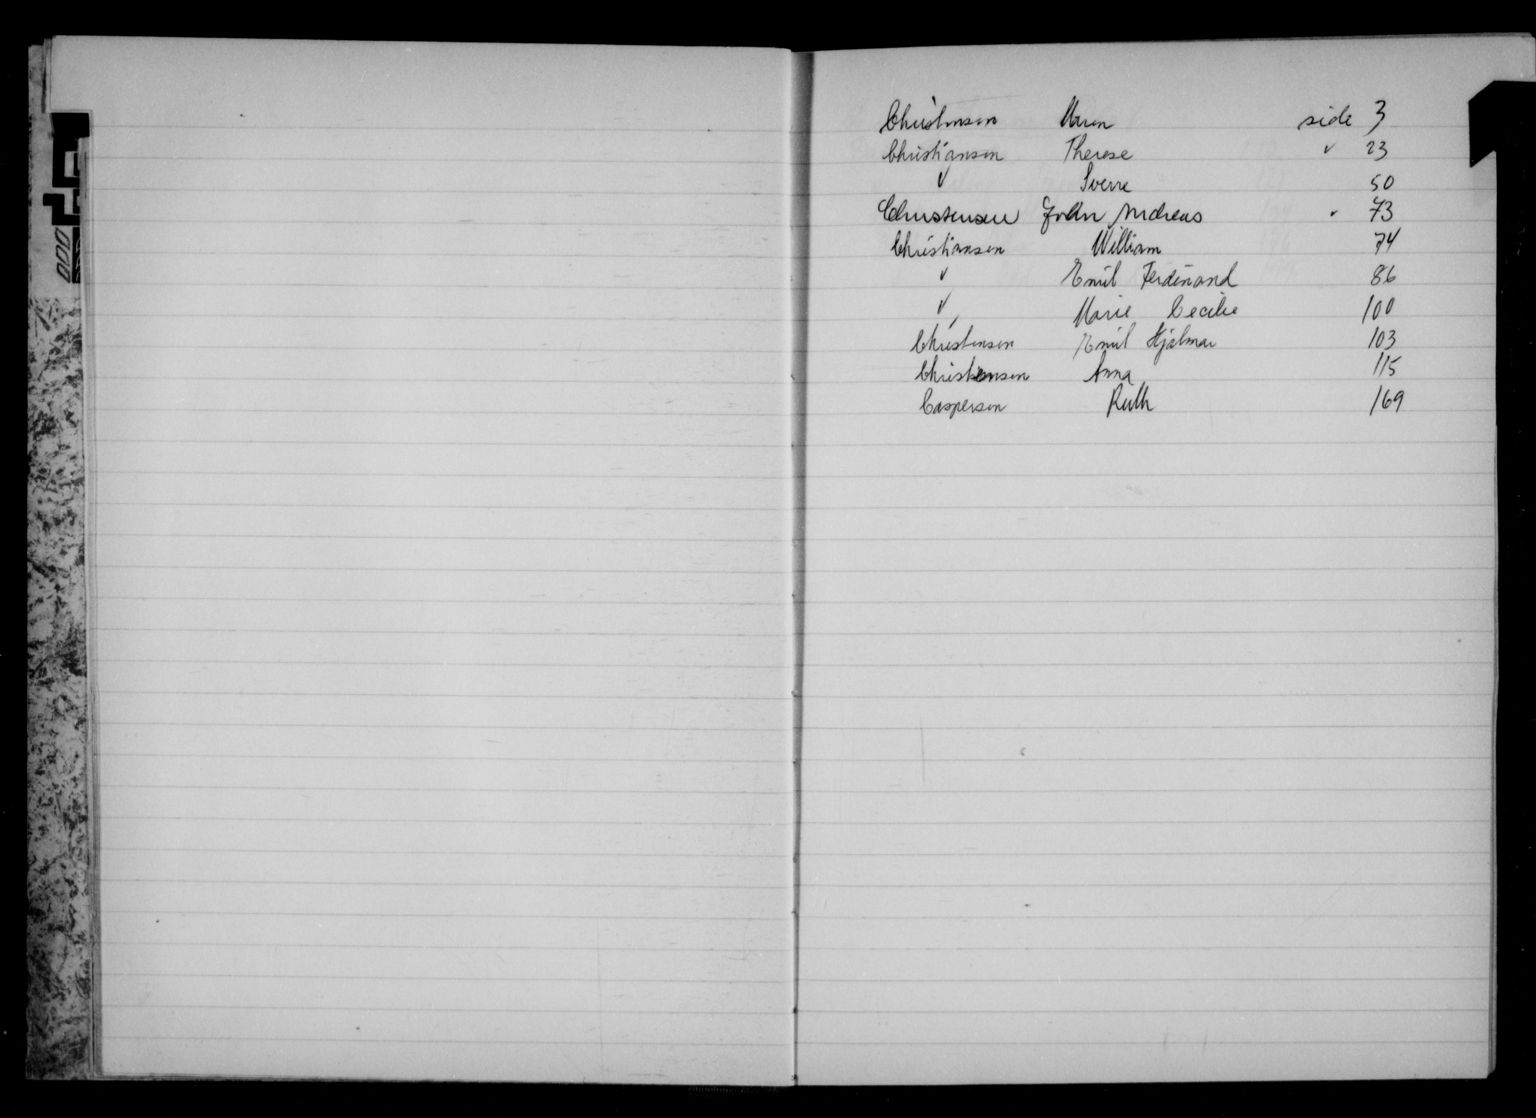 Christensen Maren side 3
Christiansen Therese v 23
v Sverre 50
Christensen John Andreas v 73
Christiansen William 74
v Emil Ferdinand 86
v Marie Cecilie 100
Christensen Emil Hjalmar 103
Christensen Anna 115
Caspersen Ruth 169